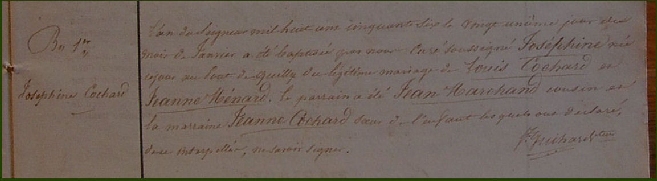 Bn 1er
Joséphine Cochard
L'an du Seigneur mil huit cent cinquante six le vingt unième jour du
mois de Janvier a été baptisée par nous Curé soussigné Joséphine née
ce jour au bout de du légitime mariage de Louis Cochard et
Jeanne Hénard. le parrain a été Jean Marchand cousin et
la marraine Jeanne Cochard sœur de l'enfant lesquels ont déclaré,
de ce interpellés, ne savoir signer.
Guihard